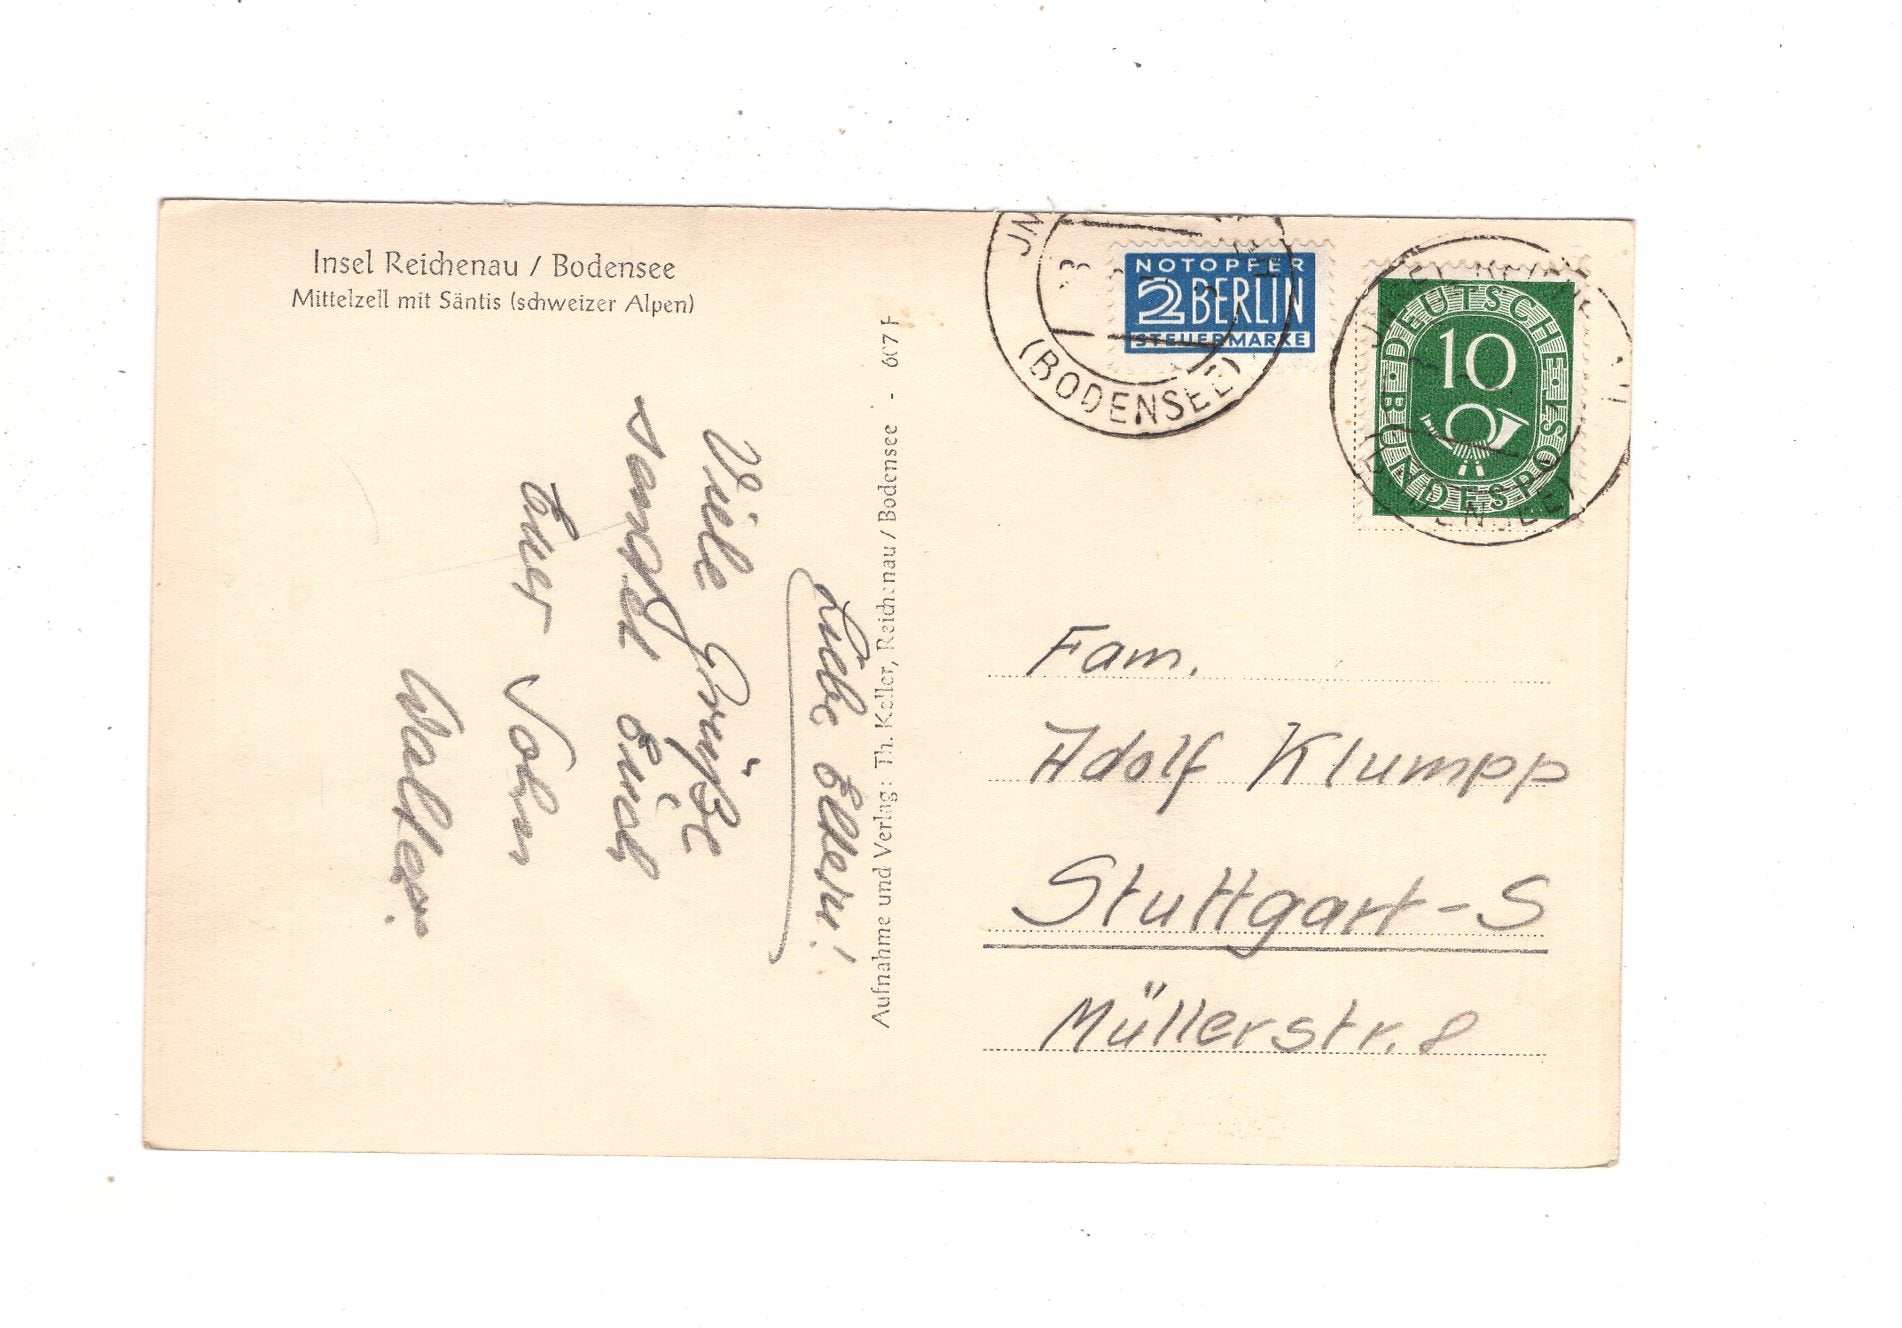 Insel Reichenau / Bodensee
Mittelzell mit Säntis (schweizer Alpen)
Liebe Eltern!
Viele Grüße
sendet Euch
Euer Sohn
Walter.
Aufnahme und Verlag: Th. Keller, Reichenau / Bodensee - 607 F
(BODENSEE)
NOTOPFER
2 BERLIN
STEUERMARKE
DEUTSCHE BUNDESPOST
10
Fam.
Adolf Klumpp
Stuttgart-S
Müllerstr. 8